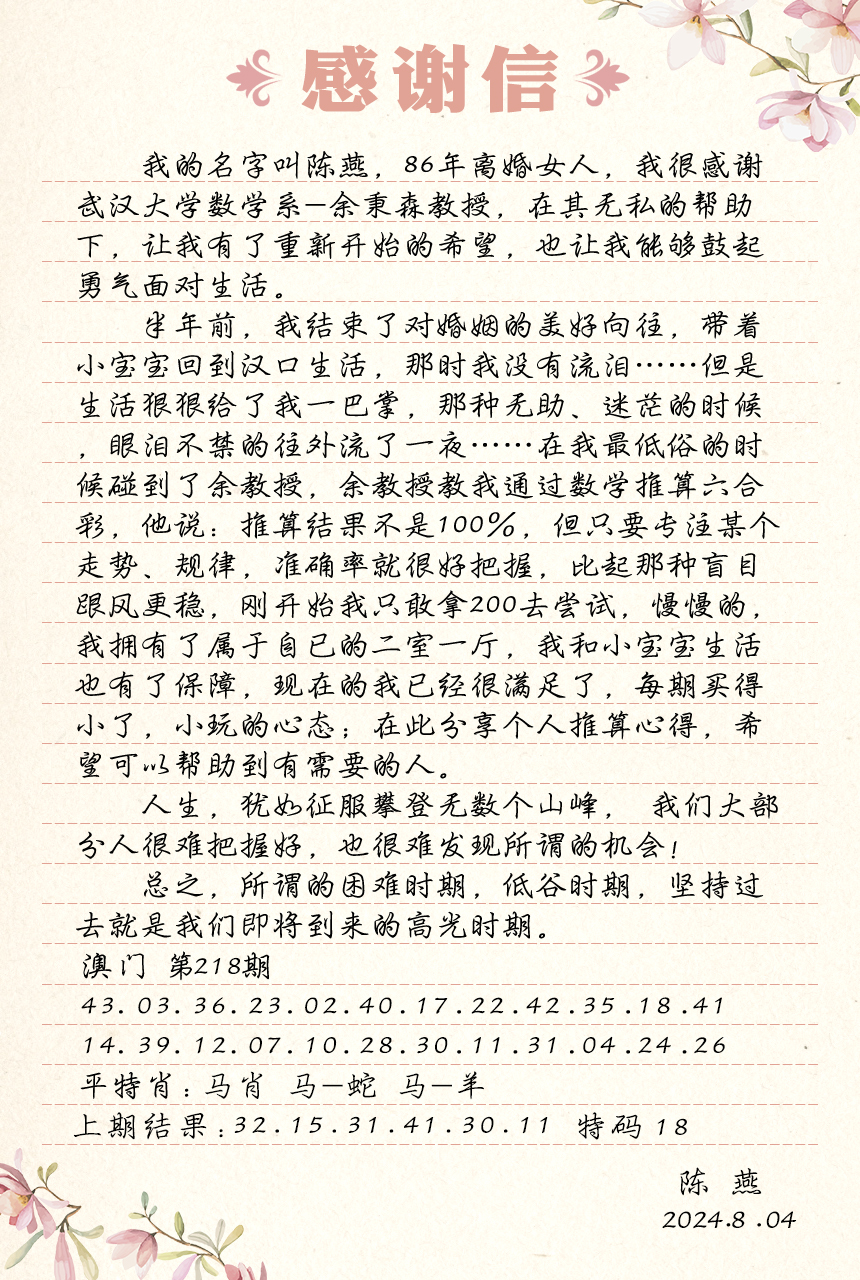 感谢信
我的名字叫陈燕，86年离婚女人，我很感谢
武汉大学数学系—余秉森教授，在其无私的帮助
下，让我有了重新开始的希望，也让我能够鼓起
勇气面对生活。
半年前，我结束了对婚姻的美好向往，带着
小宝宝回到汉口生活，那时我没有流泪……但是
生活狠狠给了我一巴掌，那种无助、迷茫的时候
，眼泪不禁的往外流了一夜……在我最低俗的时
候碰到了余教授，余教授教我通过数学推算六合
彩，他说：推算结果不是100%，但只要专注某个
走势、规律，准确率就很好把握，比起那种盲目
跟风更稳，刚开始我只敢拿200去尝试，慢慢的，
我拥有了属于自已的二室一厅，我和小宝宝生活
也有了保障，现在的我已经很满足了，每期买得
小了，小玩的心态；在此分享个人推算心得，希
望可以帮助到有需要的人。
人生，犹如征服攀登无数个山峰， 我们大部
分人很难把握好，也很难发现所谓的机会！
总之，所谓的困难时期，低谷时期，坚持过
去就是我们即将到来的高光时期。
澳门 第218期
43.03.36.23.02.40.17.22.42.35.18.41
14.39.12.07.10.28.30.11.31.04.24.26
平特肖：马肖 马—蛇 马—羊
上期结果：32.15.31.41.30.11 特码 18
陈 燕
2024.8.04